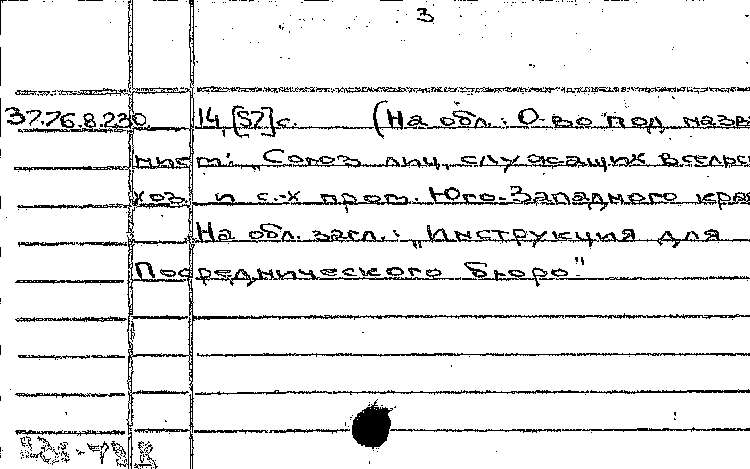 3
37.76.8.230 14,[57]с. (На обл.: О-во под назв
нием: „Союз лиц, служащих в сельс
хоз. и с.-х пром. Юго-Западного кра
На обл. загл.: „Инструкция для
Посреднического бюро."